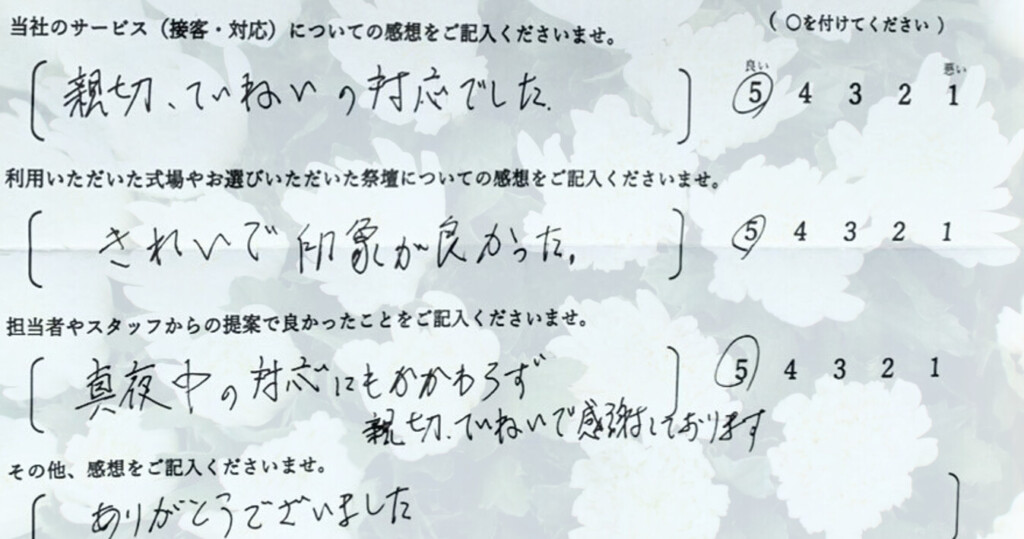 当社のサービス（接客・対応）についての感想をご記入くださいませ。 （ 〇を付けてください ）
良い 悪い
親切、ていねいの対応でした。 5 4 3 2 1
利用いただいた式場やお選びいただいた祭壇についての感想をご記入くださいませ。
きれいで印象が良かった。 5 4 3 2 1
担当者やスタッフからの提案で良かったことをご記入くださいませ。
真夜中の対応にもかかわらず 5 4 3 2 1
親切、ていねいで感謝しております
その他、感想をご記入くださいませ。
ありがとうございました